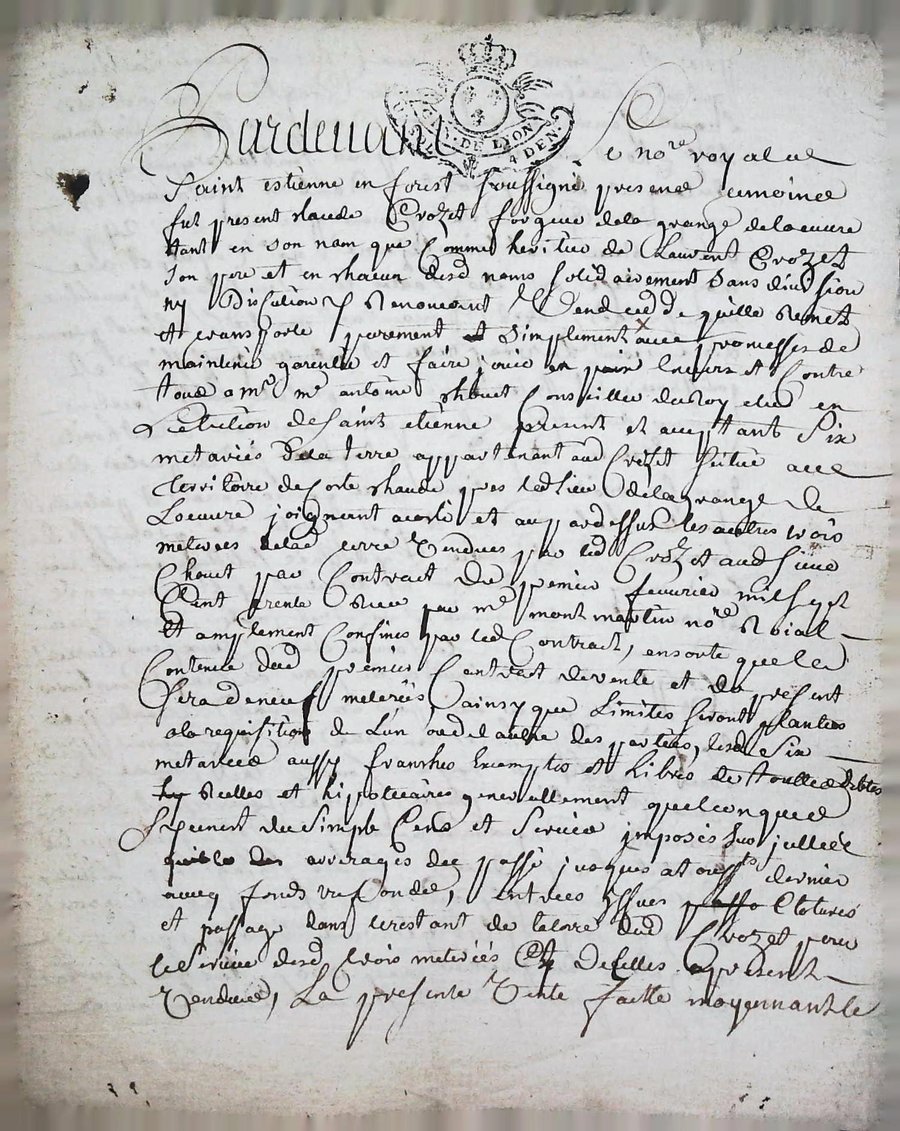 DE LYON
4 DEN
Pardevant Le no.re royal a
Saint estienne en forest soussigné presens temoins
fut present Claude Crozet forgeur de la grange de loeuvre
tant en son nom que Comme heritier de Laurent Crozet
son pere et en chacun desd noms solidairement sans division
ny Discution y Renoncent Vend cedde quitte Remet
et transporte purement et simplement avec promesses de
maintenir garentir et faire jouir envers et Contre
tous a m.re m.e antoine Chouet Conseiller du Roy elu en
Lelection de Saint etienne present et acceptant Six
meterées de terre appartenant aud Crozet situé au
territoire de Corte Chaude pres led lieu de la grange de
Loeuvre joignent et au pardessus les autres trois
meterées de lad terre Vendues par led Crozet aud sieur
Chouet par Contract du premier fevrier mil sept
Cent trente Receu par m.e montmartin no.re Roial
Et amplement Confinés par led Contract, ensorte que le
Contenu dud premier Contract de vente et du present
Sera de neuf meterées, ainsy que Limites seront plantées
a la requisition de L'un ou de l'autre des parties, lesd Six
meterées aussy franches Exemptes et Libres de touttes debtes
Reelles et hipotecaires generallement quelconques
Exement du simple Cens et Service imposés sur jcelles
arrerages du passé jusques a dernier
avec fonds tresfonds, entrées Issues Clotures
et passage dans le restant de la terre dud Crozet pour
le Service desd trois meterées Et de celles a present
Vendues, La presente Vente faitte moyennant le